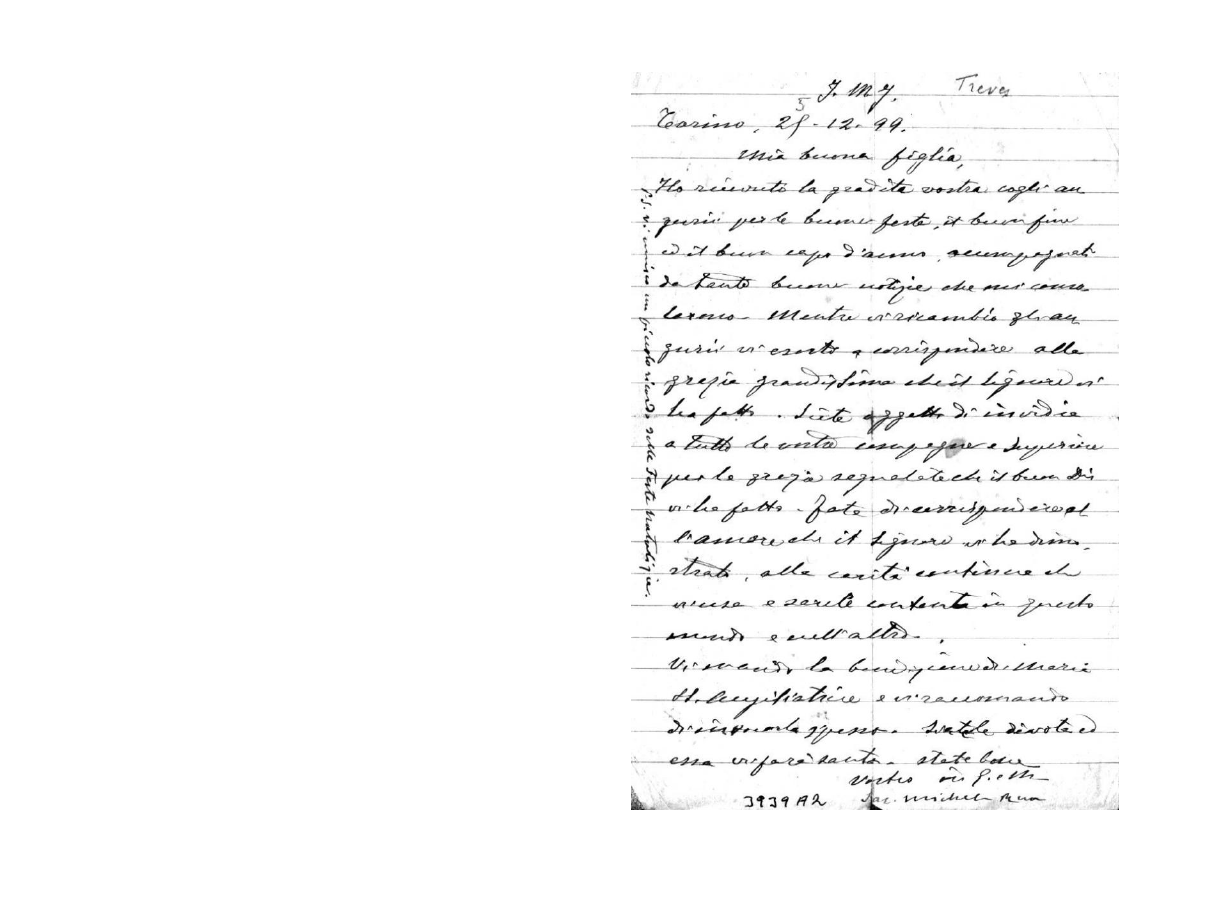 J. M J.
Treves
Torino, 25-12-99.
5
Mia buona figlia,
Ho ricevuto la gradita vostra cogli au
gurii per le buone feste, il buon fine
ed il buon capo d'anno, accompagnati
da tante buone notizie che mi conso
larono. Mentre vi ricambio gli au
gurii vi esorto a corrispondere alla
grazia grandissima che il Signore vi
ha fatto. Siete oggetto di invidia
a tutte le vostre compagne e Superiore
per le grazie segnalate che il buon Dio
vi ha fatto. Fate di corrispondere al
l'amore che il Signore vi ha dimo
strato, alla carità continua che
vi usa e sarete contenta in questo
mondo e nell'altro.
Vi mando la benedizione di Maria
SS. Ausiliatrice e vi raccomando
di invocarla spesso. Siatele divota ed
essa vi farà santa. State bene
Vostro in G. e M.
Sac. Michele Rua
3939 A2
P.S. Vi unisco un piccolo ricordo delle Feste Natalizie.